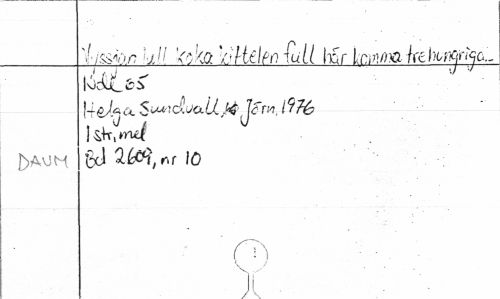 Vyssjan lull koka kittelen full här komma tre hungriga...
Ndl 65
Helga Sundvall, Jörn, 1976
1 str, mel
DAUM Bd 2609, nr 10